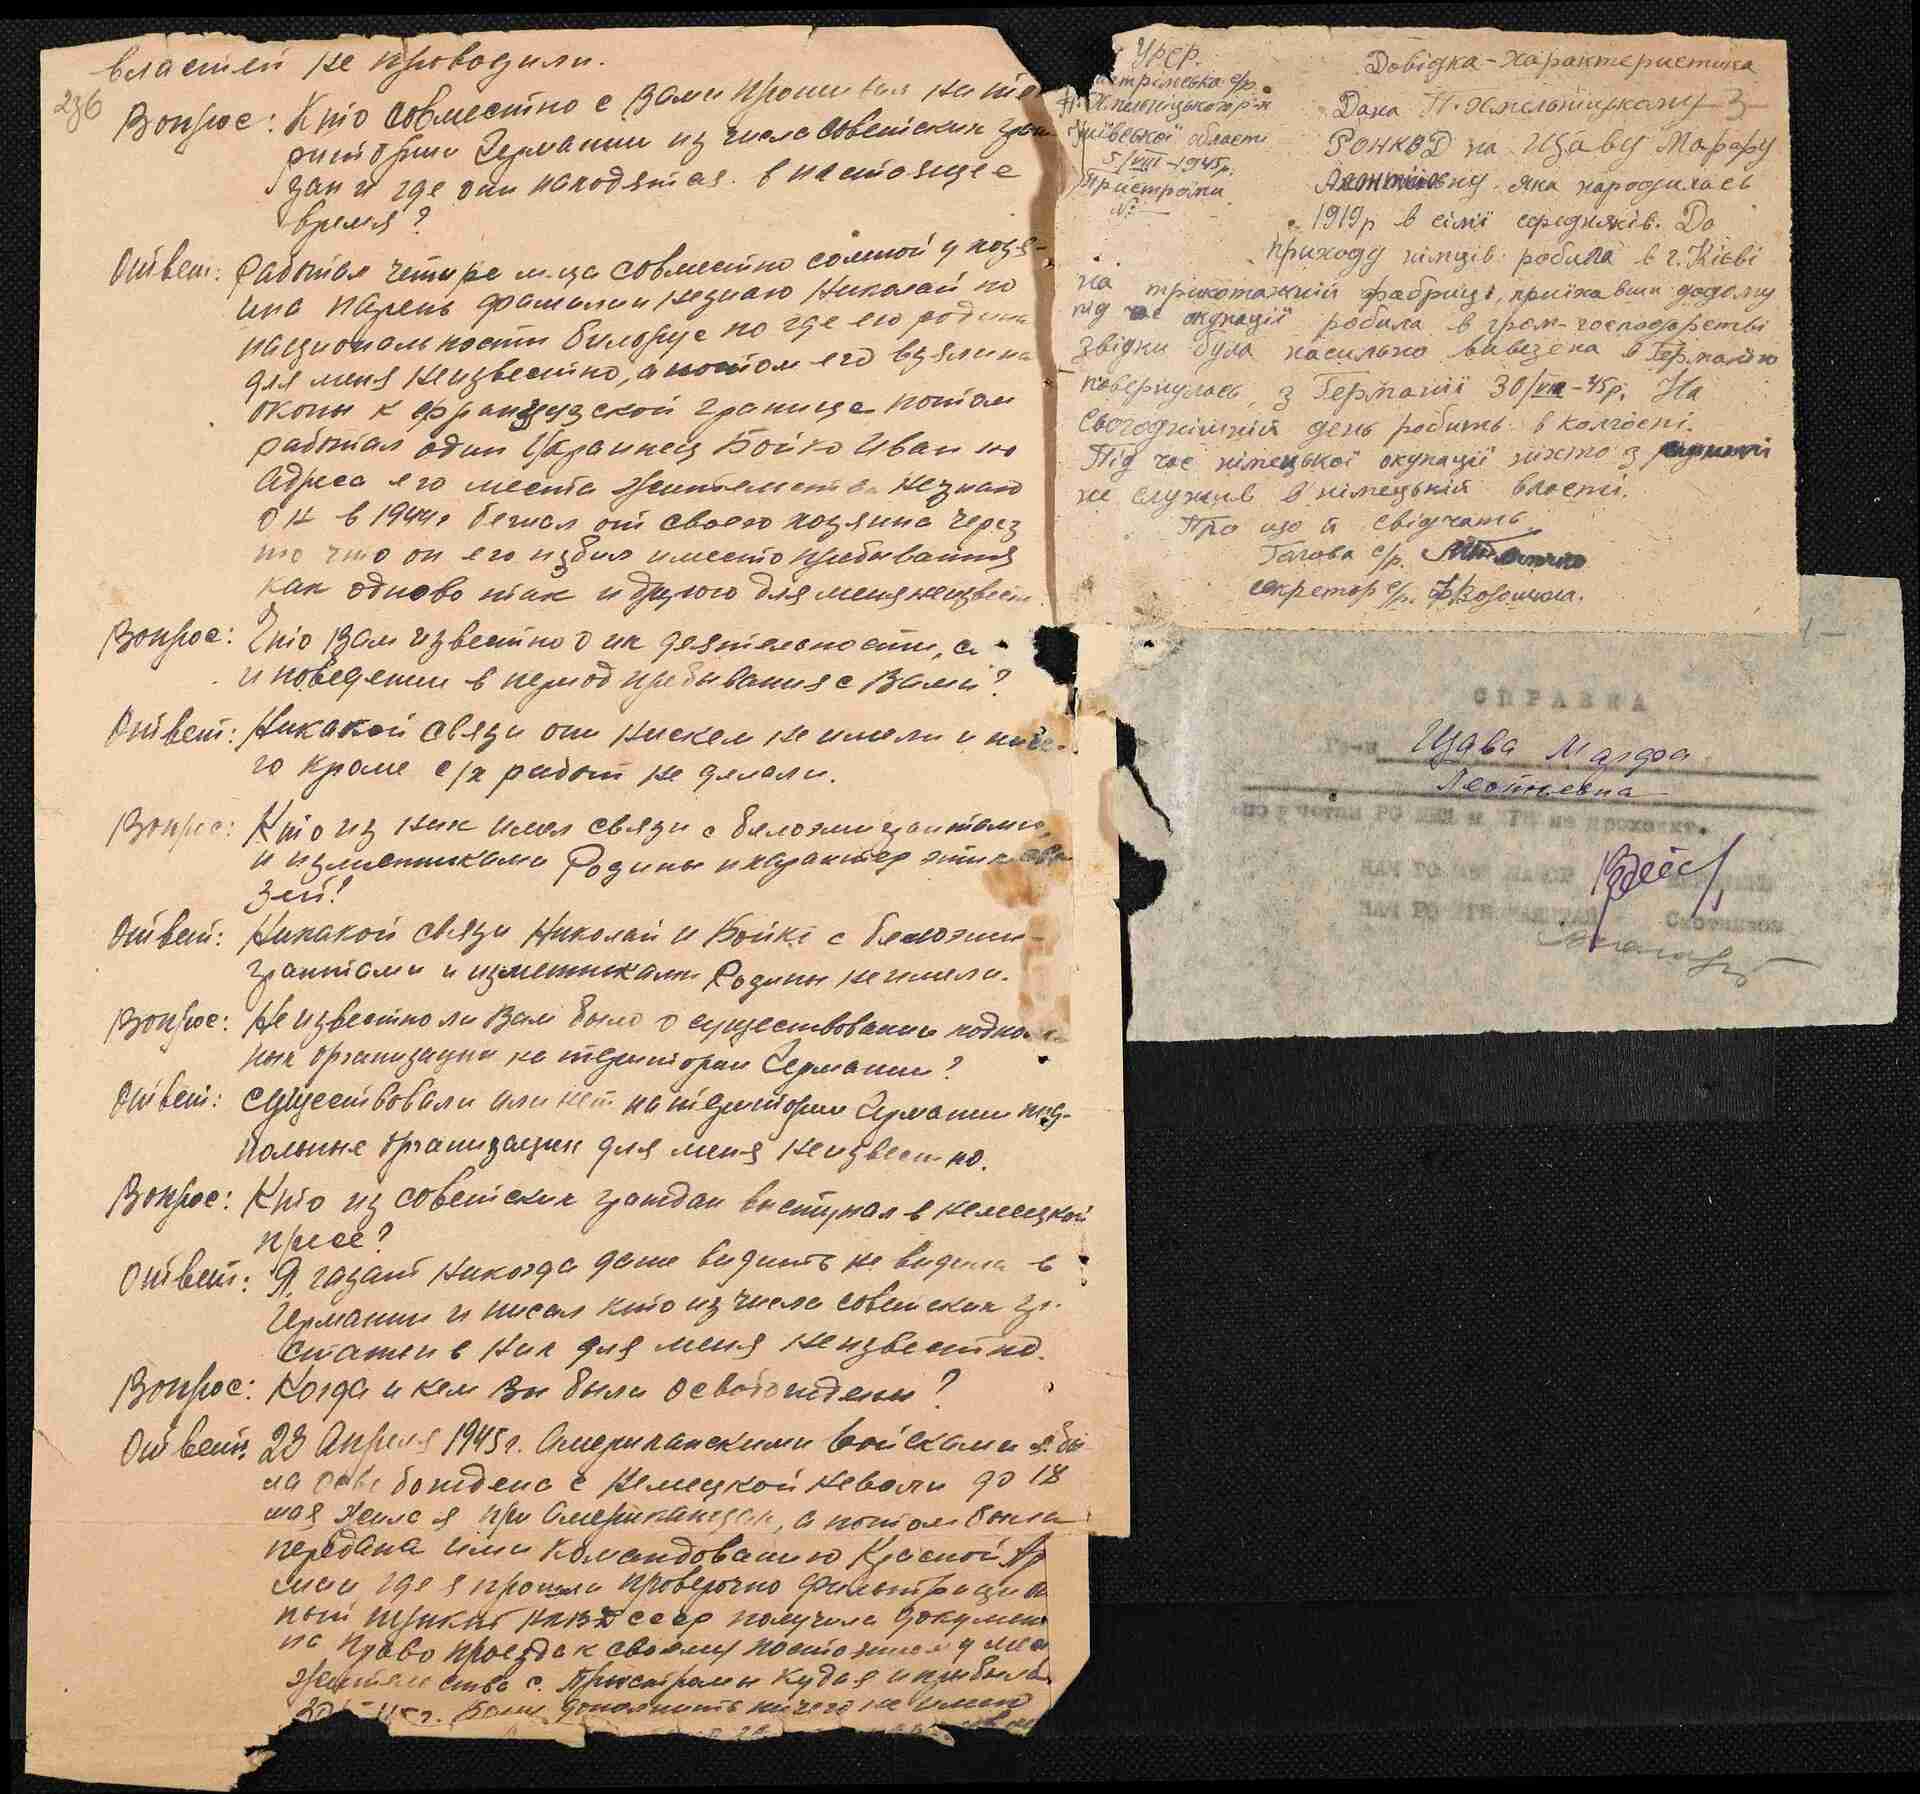 властей не проводили.
236
Вопрос: Кто совместно с Вами проживал на те
ритории Германии из числа советских граж
дан и где они находятся в настоящее
время?
Ответ: Работал четыре м-ца совместно со мной у хозя-
ина парень фамилии незнаю Николай по
национальности билорус но где его родина
для меня неизвестно, а потом его взяли на
окопы к французской границе потом
работал один Украинец Бойко Иван но
Адреса его места жительства незнаю
он в 1944г бежал от своего хозяина через
то что он его избил и место пребывания
как одново так и другого для меня неизвест
Вопрос: Что Вам известно о их деятельности, с
и поведении в период пребывания с Вами?
Ответ: Никакой связи они нискем не имели и ниче-
го кроме с/х работ не делали.
Вопрос: Кто из них имел связи с белоэмигрантами,
и изменниками Родины и характер этих свя
зей?
Ответ: Никакой связи Николай и Бойко с белоэми-
грантами и изменниками Родины не имели.
Вопрос: Не известно ли Вам было о существовании подпо
ных организации на територии Германии?
Ответ: Существовали или нет на територии Германии под-
польные организации для меня неизвестно.
Вопрос: Кто из советских граждан выступал в немецкой
прессе?
Ответ: Я газет никогда даже видить не видила в
Германии и писал кто из числа советских гр.
статеи в них для меня неизвестно.
Вопрос: Когда и кем Вы были освобождены?
Ответ: 23 Апреля 1945г. Американскими войсками я бы
ла освобождена с Немецкой неволи до 18
мая жила я при Американцах, а потом была
передана ими командованию Красной Ар
мии где я прошла проверочно фильтрацион
ный пункт НКВД СССР получила документ
на право проезда к своему постоянному мес
жительства с. Пристромы куда я и прибыла
30 45г. Более дополнить ничего не имею
УРСР.
стрімська с/р.
П. Хмельницького р-н
Київської області
5/VIII-1945р.
Пристроми
№ —
Довідка-Характеристика
Дана П. Хмельницькому
РОНКВД на Щаву Марфу
Леонтіївну яка народилась
1919р в сімї середняків. До
приходу німців робила в г. Києві
на трикотажній фабриці, приїхавши додому
під час окупації робила в гром-господарстві
звідки була насильно вивезена в Германію
повернулась з Германії 30/VII-45р. На
сьогоднішній день робить в колгоспі.
Під час німецької окупації ніхто з
не служив в німецькій власті.
Про що й свідчать.
Голова с/р.
секретар с/р.
СПРАВКА
Гр-н Щава Марфа
Леонтьевна
по учетам РО НКВД и НКГБ не проходит.